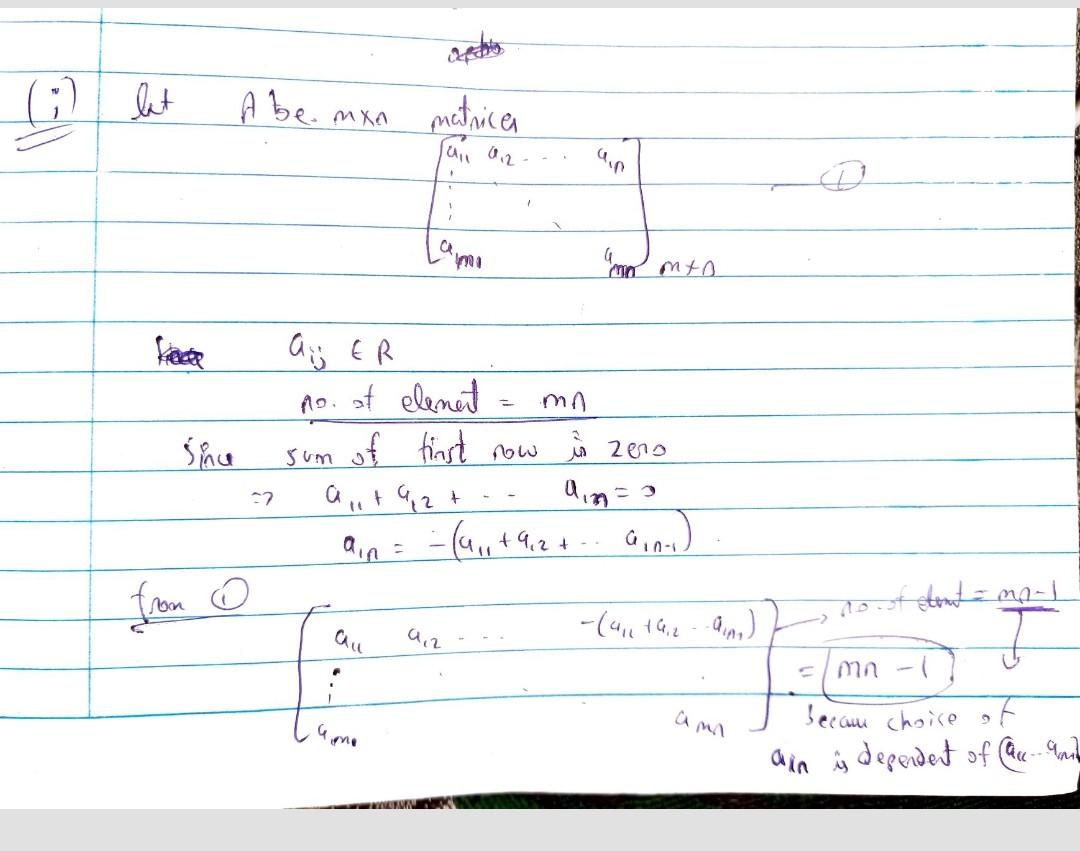 (i) let A be m×n matrices
[a₁₁ a₁₂ - - - . . a₁ₙ
aₘ₁ aₘₙ] m×n ①
aᵢⱼ ∈ R
no. of element = mn
Since sum of first row is zero
=> a₁₁ + a₁₂ + - - a₁ₙ = 0
a₁ₙ = -(a₁₁ + a₁₂ + .. a₁ₙ₋₁)
from ①
[a₁₁ a₁₂ - - - -(a₁₁ + a₁₂ .. a₁ₙ₋₁) → no. of elemt = mn-1
= mn - 1
aₘ₁ aₘₙ] because choice of
a₁ₙ is dependent of